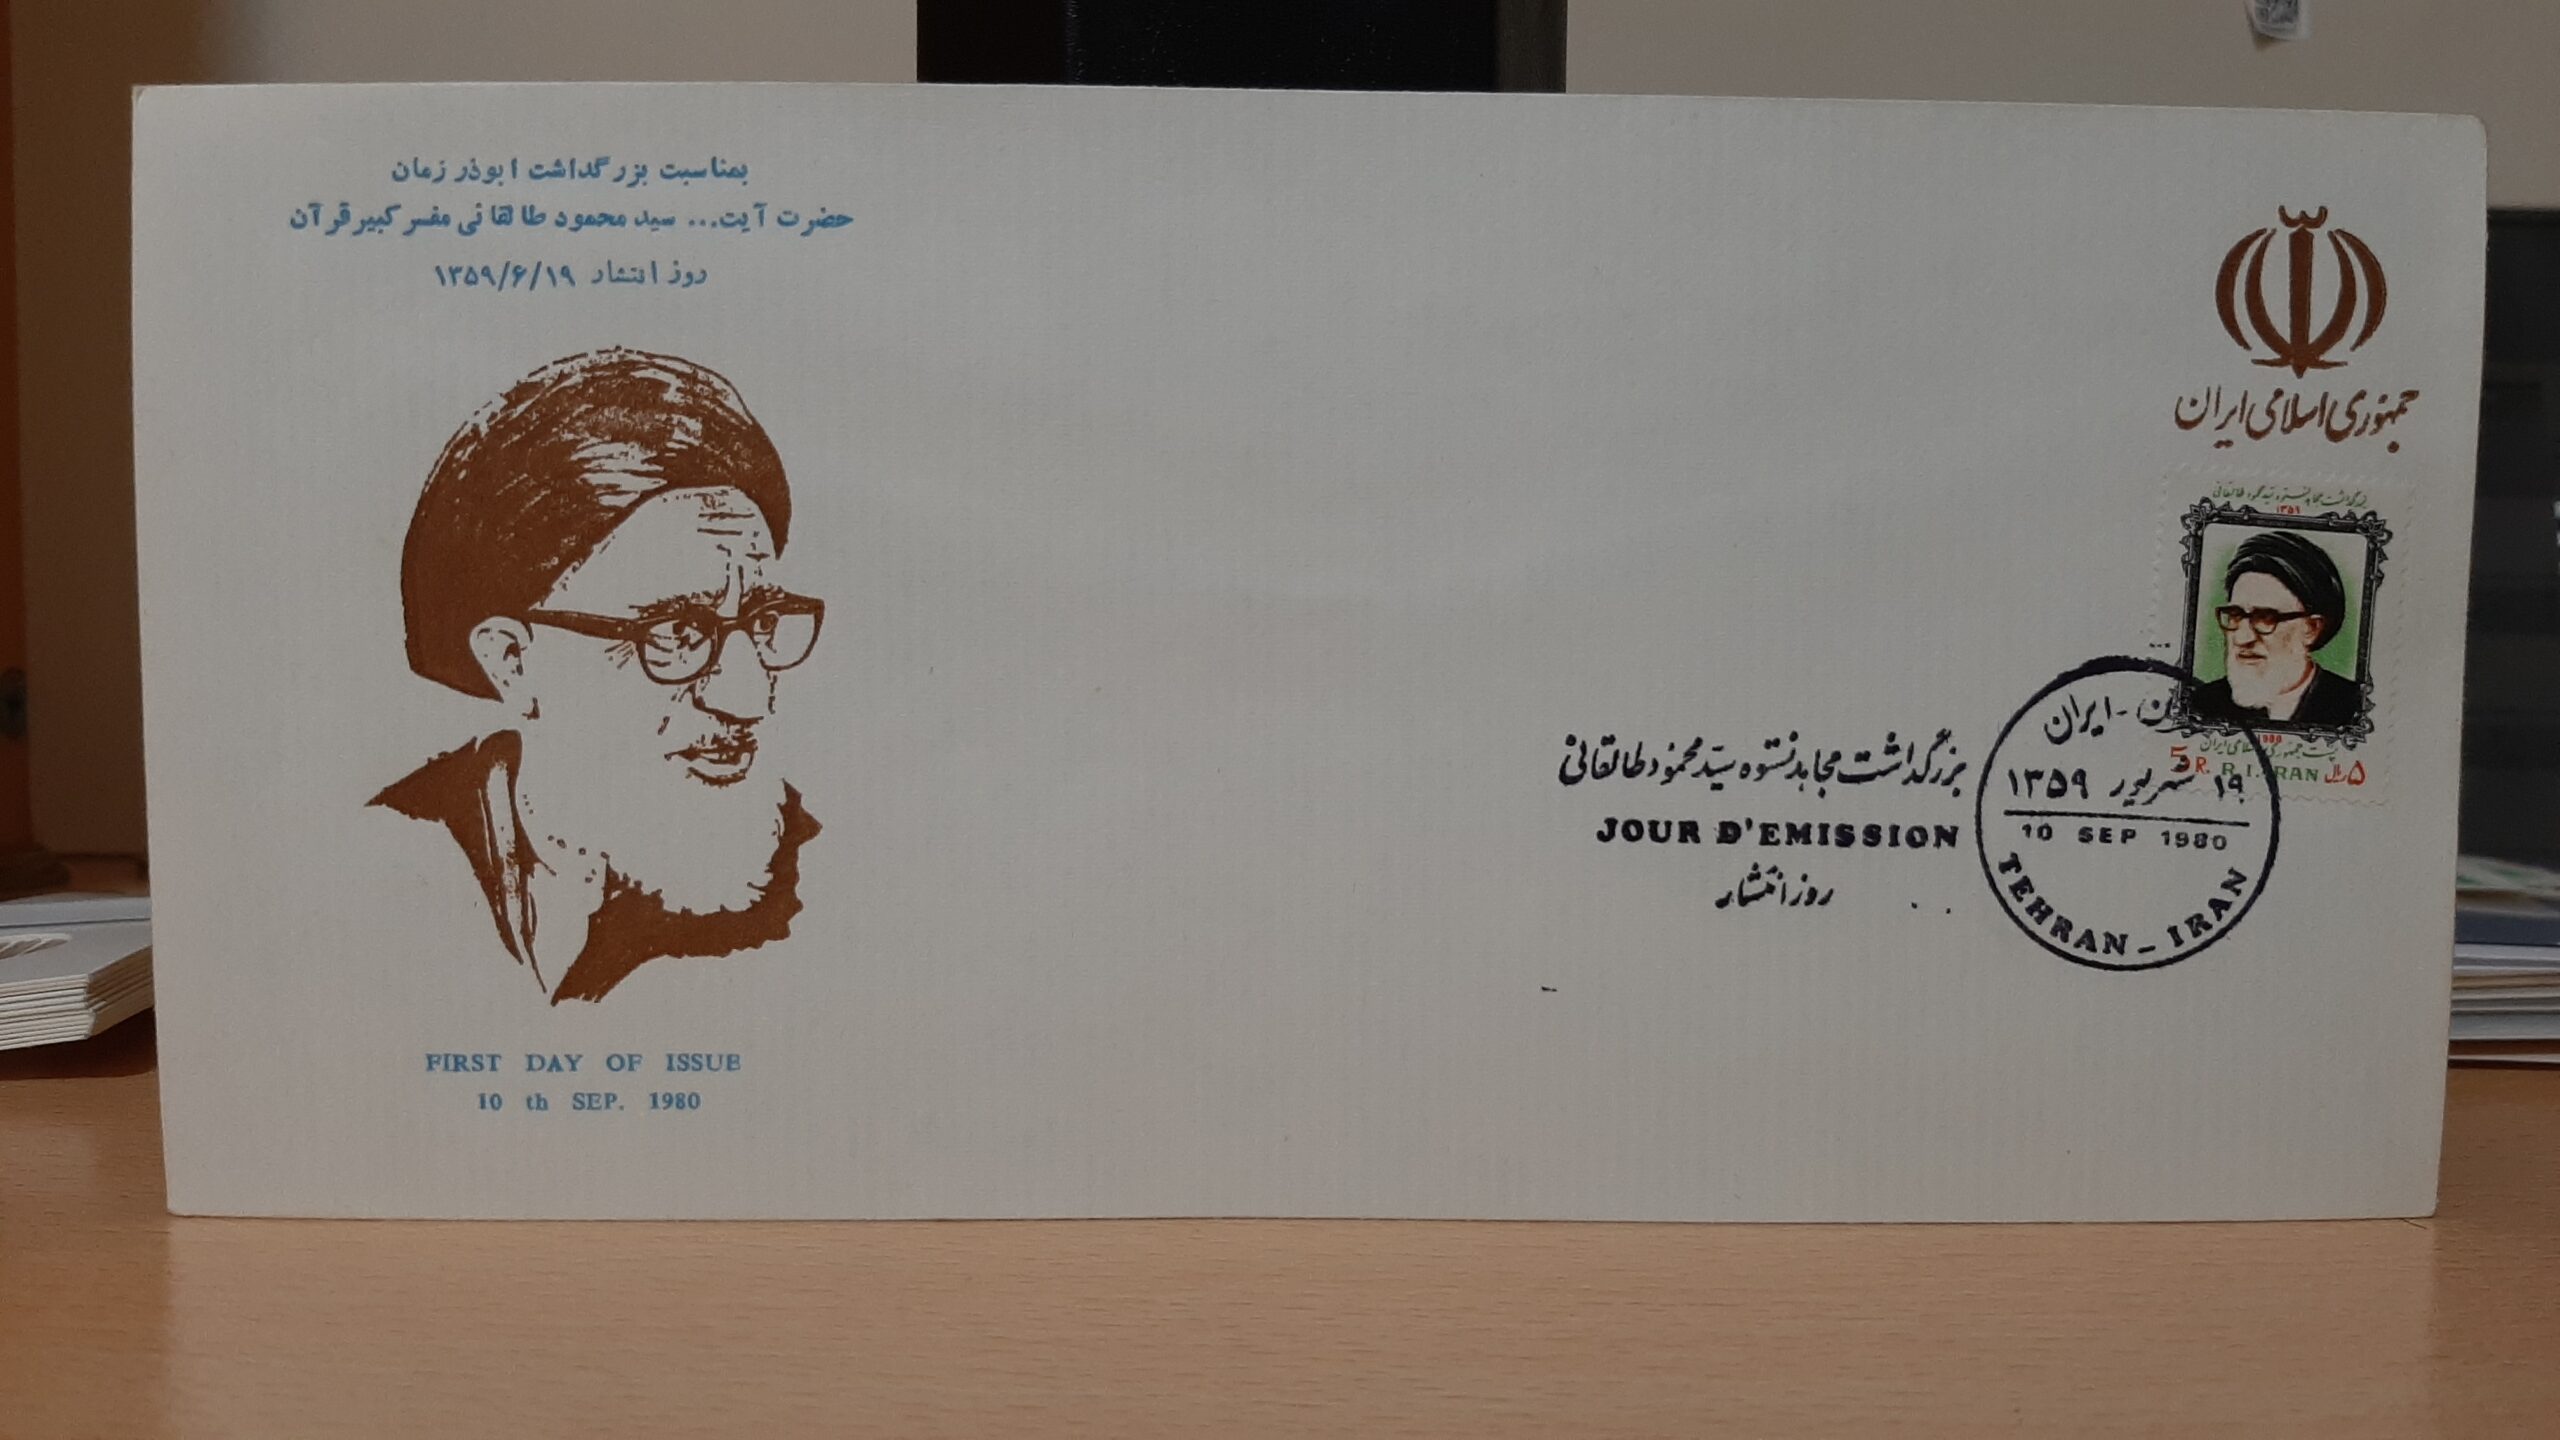 بمناسبت بزرگداشت ابوذر زمان
حضرت آیت... سید محمود طالقانی مفسر کبیر قرآن
روز انتشار ۱۳۵۹/۶/۱۹
FIRST DAY OF ISSUE
10 th SEP. 1980
جمهوری اسلامی ایران
بزرگداشت مجاهد نستوه سید محمود طالقانی
۱۳۵۹
1980
پست جمهوری اسلامی ایران
5 R. R.I.IRAN ۵ ریال
بزرگداشت مجاهد نستوه سید محمود طالقانی
JOUR D'EMISSION
روز انتشار
ایران
۱۹ شهریور ۱۳۵۹
10 SEP 1980
TEHRAN - IRAN